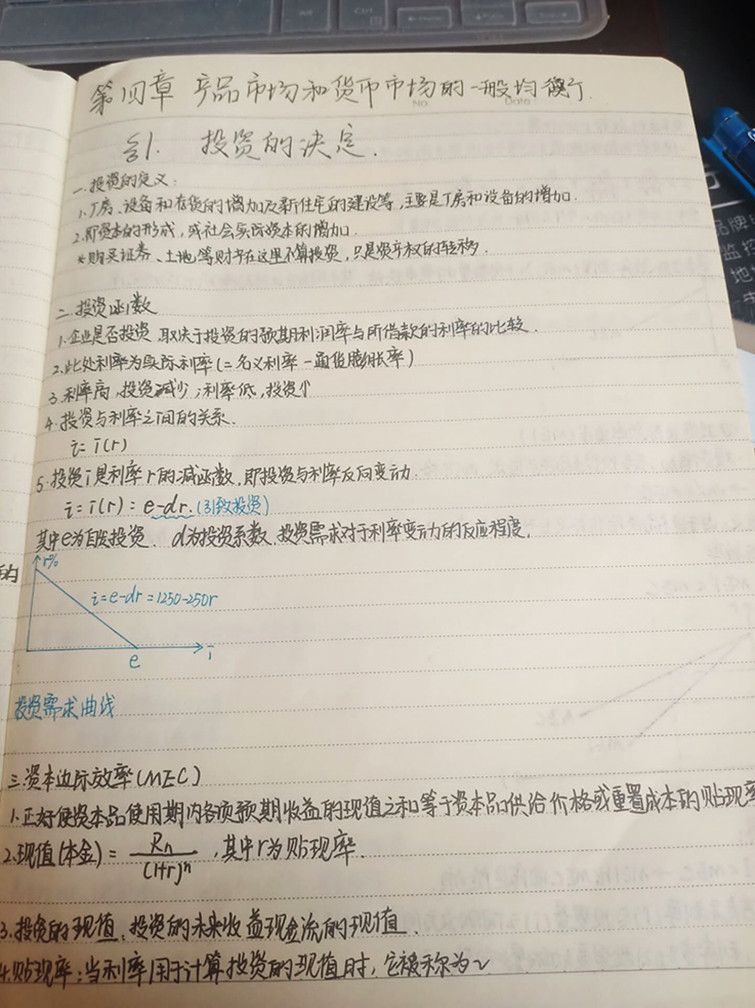 第四章 产品市场和货币市场的一般均衡
No. Date.
§1. 投资的决定.
一. 投资的定义:
1.厂房、设备和存货的增加及新住宅的建设等,主要是厂房和设备的增加.
2.即资本的形成,或社会实际资本的增加.
*购买证券、土地等财产在这里不算投资,只是资产权的转移.
二. 投资函数
1.企业是否投资 取决于投资的预期利润率与所借款的利率的比较.
2.此处利率为实际利率(=名义利率-通货膨胀率)
3.利率高,投资减少;利率低,投资个
4.投资与利率之间的关系.
i=i(r)
5.投资i是利率r的减函数,即投资与利率反向变动.
i=i(r)=e-dr.(引致投资)
其中e为自发投资、d为投资系数,投资需求对于利率变动的反应程度.
的
r%
i=e-dr=1250-250r
e
i
投资需求曲线
三.资本边际效率(MEC)
1.正好使资本品使用期内各项预期收益的现值之和等于资本品供给价格或重置成本的贴现率
2.现值(本金)=Rn/(1+r)^n,其中r为贴现率.
3.投资的现值:投资的未来收益现金流的现值.
4.贴现率:当利率用于计算投资的现值时,它被称为~
品牌
监控
地